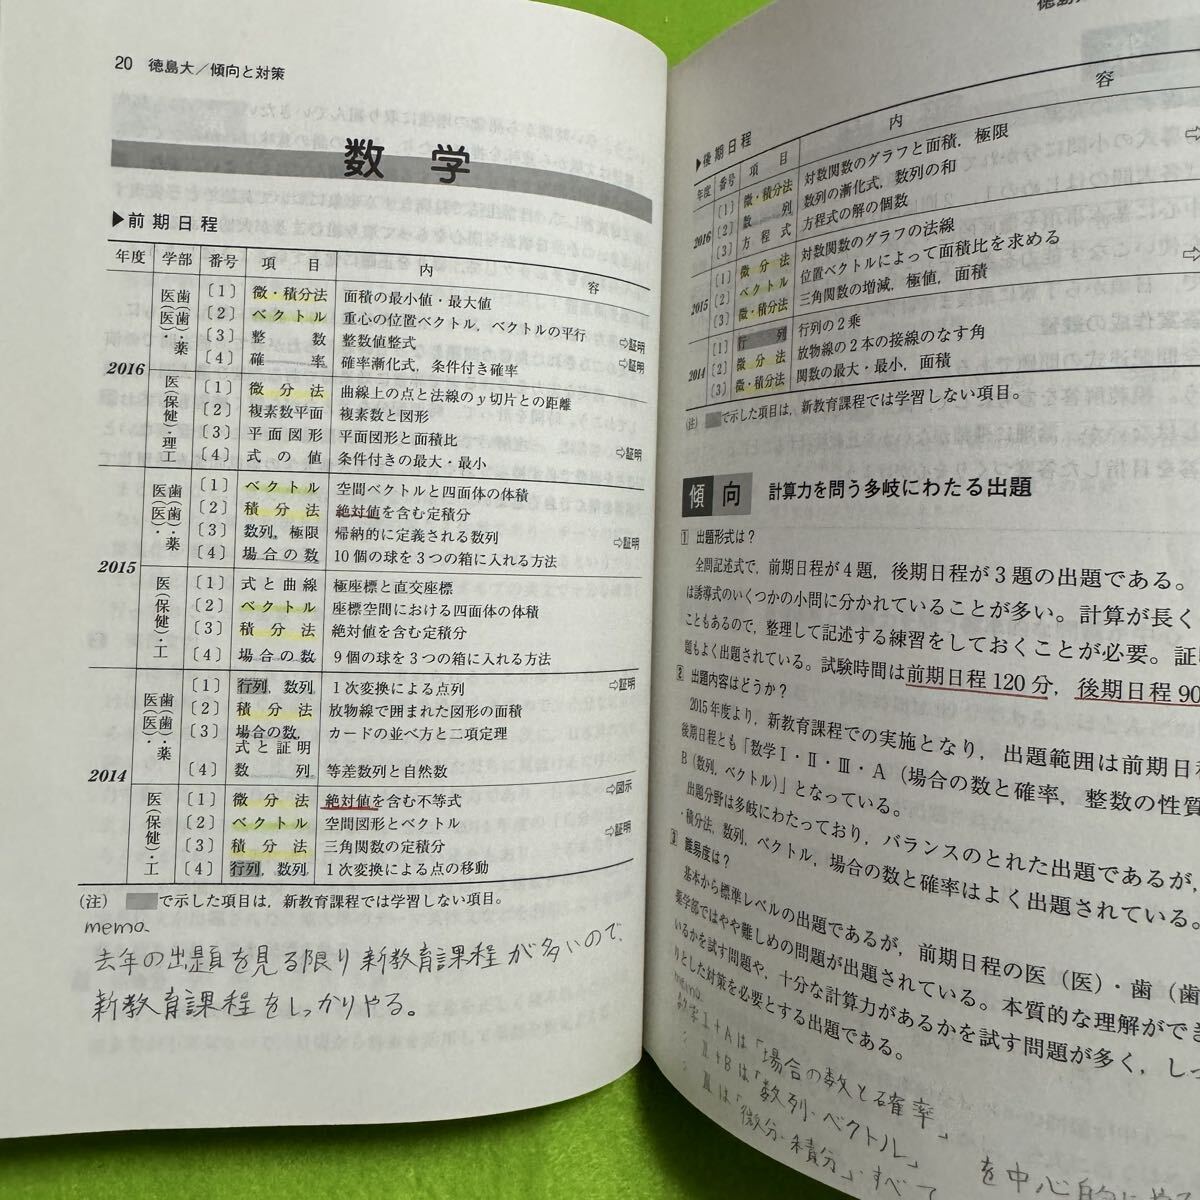 20 徳島大／傾向と対策
数 学
▶前期日程
年度 学部 番号 項 目 内 容
2016 医(医)・歯(歯)・薬
〔1〕 微・積分法 面積の最小値・最大値
〔2〕 ベクトル 重心の位置ベクトル，ベクトルの平行
〔3〕 整 数 整数値整式 ⇨証明
〔4〕 確 率 確率漸化式，条件付き確率 ⇨証明
医(保健)・理工
〔1〕 微 分 法 曲線上の点と法線のy切片との距離
〔2〕 複素数平面 複素数と図形
〔3〕 平 面 図 形 平面図形と面積比
〔4〕 式 の 値 条件付きの最大・最小 ⇨証明
2015 医(医)・歯(歯)・薬
〔1〕 ベクトル 空間ベクトルと四面体の体積
〔2〕 積 分 法 絶対値を含む定積分
〔3〕 数列，極限 帰納的に定義される数列 ⇨証明
〔4〕 場合の数 10個の球を3つの箱に入れる方法
医(保健)・工
〔1〕 式と曲線 極座標と直交座標
〔2〕 ベクトル 座標空間における四面体の体積
〔3〕 積 分 法 絶対値を含む定積分
〔4〕 場合の数 9個の球を3つの箱に入れる方法
2014 医(医)・歯(歯)・薬
〔1〕 行列，数列 1次変換による点列 ⇨証明
〔2〕 積 分 法 放物線で囲まれた図形の面積
〔3〕 場合の数，式と証明 カードの並べ方と二項定理
〔4〕 数 列 等差数列と自然数
医(保健)・工
〔1〕 微 分 法 絶対値を含む不等式 ⇨図示
〔2〕 ベクトル 空間図形とベクトル
〔3〕 積 分 法 三角関数の定積分 ⇨証明
〔4〕 行列，数列 1次変換による点の移動
(注) で示した項目は，新教育課程では学習しない項目。
memo.
去年の出題を見る限り新教育課程が多いので、
新教育課程をしっかりやる。
徳島大
▶後期日程
年度 番号 項 目 内 容
2016 〔1〕 微・積分法 対数関数のグラフと面積，極限
〔2〕 数 列 数列の漸化式，数列の和
〔3〕 方 程 式 方程式の解の個数
2015 〔1〕 微 分 法 対数関数のグラフの法線
〔2〕 ベクトル 位置ベクトルによって面積比を求める
〔3〕 微・積分法 三角関数の増減，極値，面積
2014 〔1〕 行 列 行列の2乗
〔2〕 微 分 法 放物線の2本の接線のなす角
〔3〕 微・積分法 関数の最大・最小，面積
(注) で示した項目は，新教育課程では学習しない項目。
傾向 計算力を問う多岐にわたる出題
1 出題形式は？
全問記述式で，前期日程が4題，後期日程が3題の出題である。
は誘導式のいくつかの小問に分かれていることが多い。計算が長く
こともあるので，整理して記述する練習をしておくことが必要。証
題もよく出題されている。試験時間は前期日程120分，後期日程90
2 出題内容はどうか？
2015年度より，新教育課程での実施となり，出題範囲は前期日程
後期日程とも「数学Ⅰ・Ⅱ・Ⅲ・A（場合の数と確率，整数の性質
B（数列，ベクトル）」となっている。
出題分野は多岐にわたっており，バランスのとれた出題であるが，
・積分法，数列，ベクトル，場合の数と確率はよく出題されている。
3 難易度は？
基本から標準レベルの出題であるが，前期日程の医（医）・歯（歯
薬学部ではやや難しめの問題が出題されている。本質的な理解ができ
いるかを試す問題や，十分な計算力があるかを試す問題が多く，しっ
りとした対策を必要とする出題である。
memo.
数学Ⅰ+Aは「場合の数と確率」
〃 Ⅱ+Bは「数列・ベクトル」
〃 Ⅲは「微分・積分」すべて を中心的に